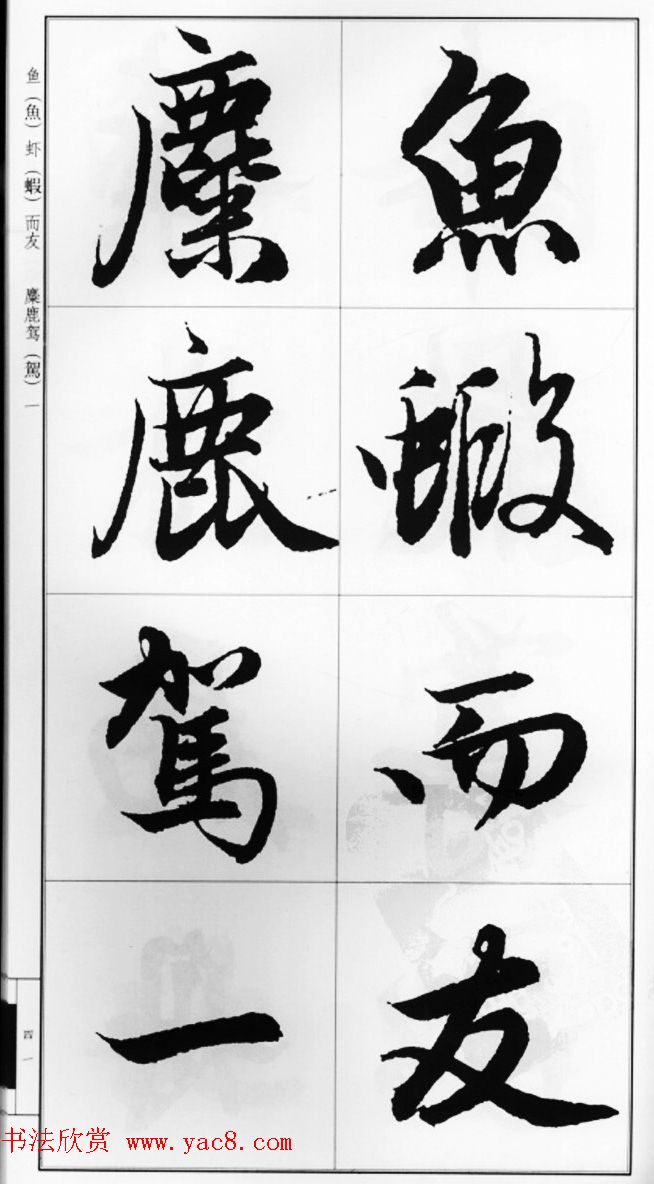 魚蝦而友
麋鹿駕一
鱼（魚）虾（蝦）而友　麋鹿驾（駕）一
四一
书法欣赏 www.yac8.com